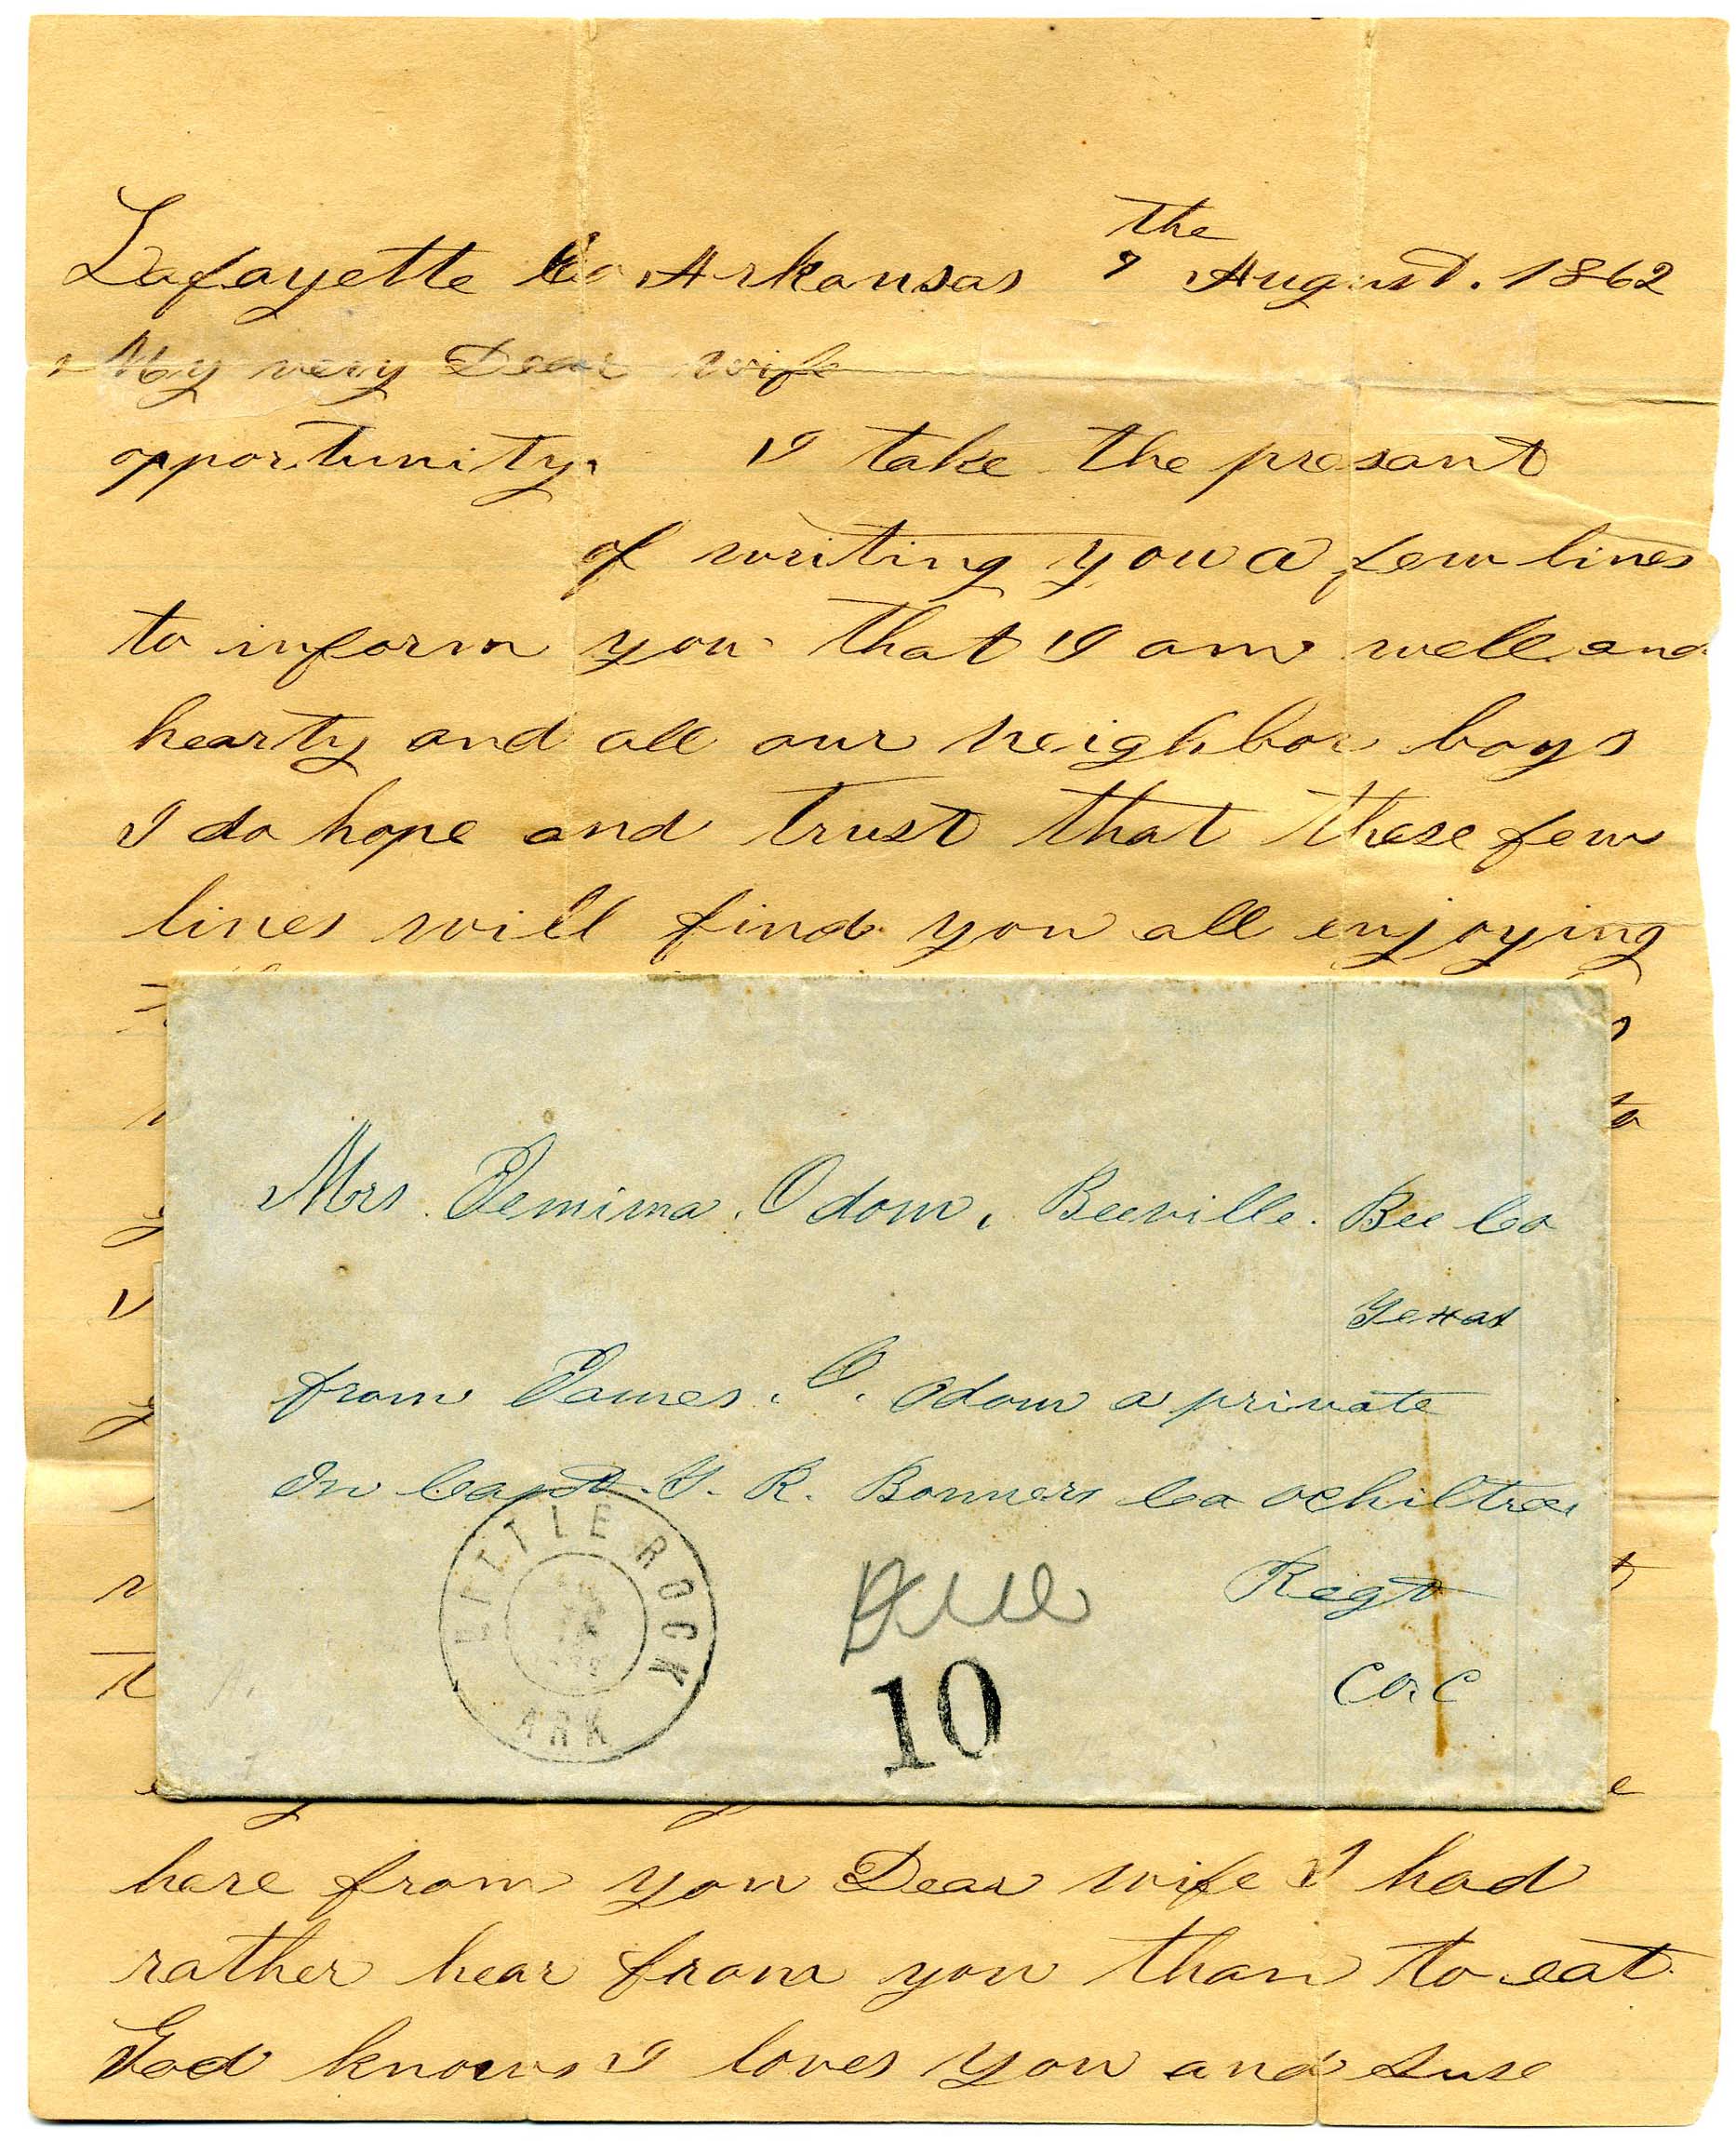 the
Lafayette Co Arkansas 7 August. 1862
My very Dear wife
opportunity. I take the presant
of writing you a few lines
to inform you that I am well and
hearty and all our neighbor boys
I do hope and trust that these few
lines will find you all enjoying
Mrs. Jemima. Odom, Beeville. Bee Co
Texas
from James. C. Odom a private
In Capt. T. R. Bonners Co ochiltree
Regt
CO. C
LITTLE ROCK
ARK
Due
10
here from you Dear wife I had
rather hear from you than to eat
God knows I loves you and Suse